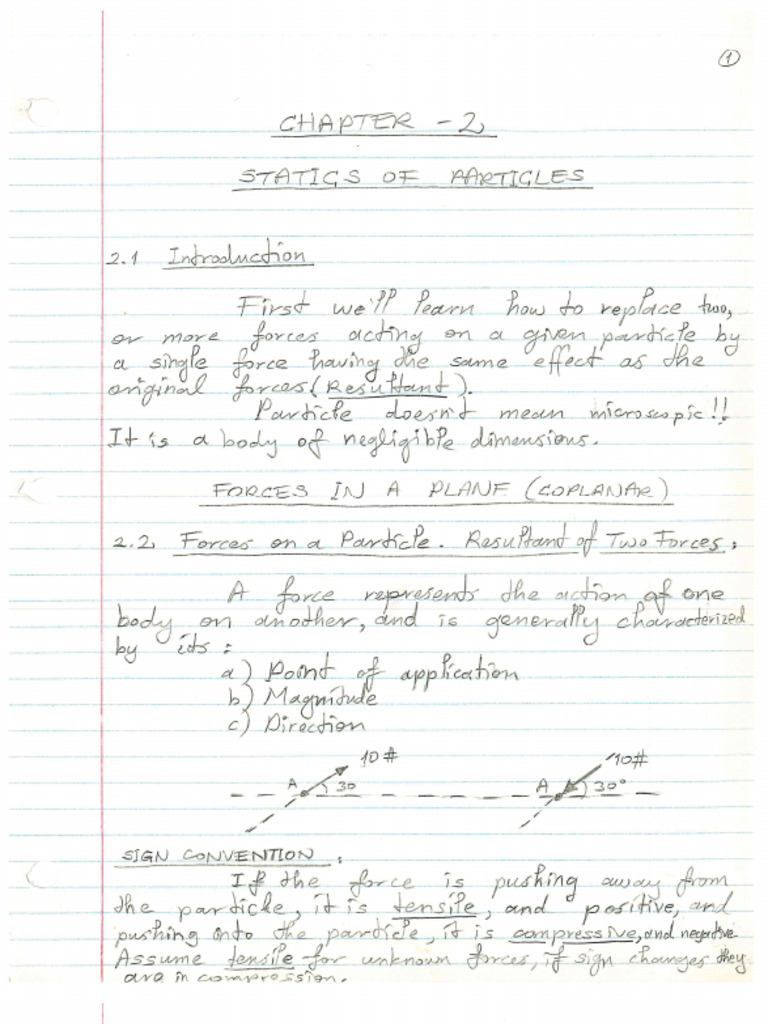 1
CHAPTER - 2
STATICS OF PARTICLES
2.1 Introduction
First we'll learn how to replace two,
or more forces acting on a given particle by
a single force having the same effect as the
original forces (Resultant).
Particle doesn't mean microscopic!!
It is a body of negligible dimensions.
FORCES IN A PLANE (COPLANAR)
2.2 Forces on a Particle. Resultant of Two Forces:
A force represents the action of one
body on another, and is generally characterized
by its:
a) Point of application
b) Magnitude
c) Direction
10# 10#
A 30 A 30°
SIGN CONVENTION:
If the force is pushing away from
the particle, it is tensile, and positive, and
pushing onto the particle, it is compressive, and negative
Assume tensile for unknown forces, if sign changes they
are in compression.